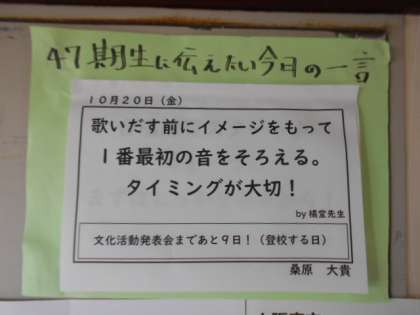 47期生に伝えたい今日の一言
10月20日（金）
歌いだす前にイメージをもって
1番最初の音をそろえる。
タイミングが大切！
by 橘堂先生
文化活動発表会まであと9日！（登校する日）
桑原 大貴